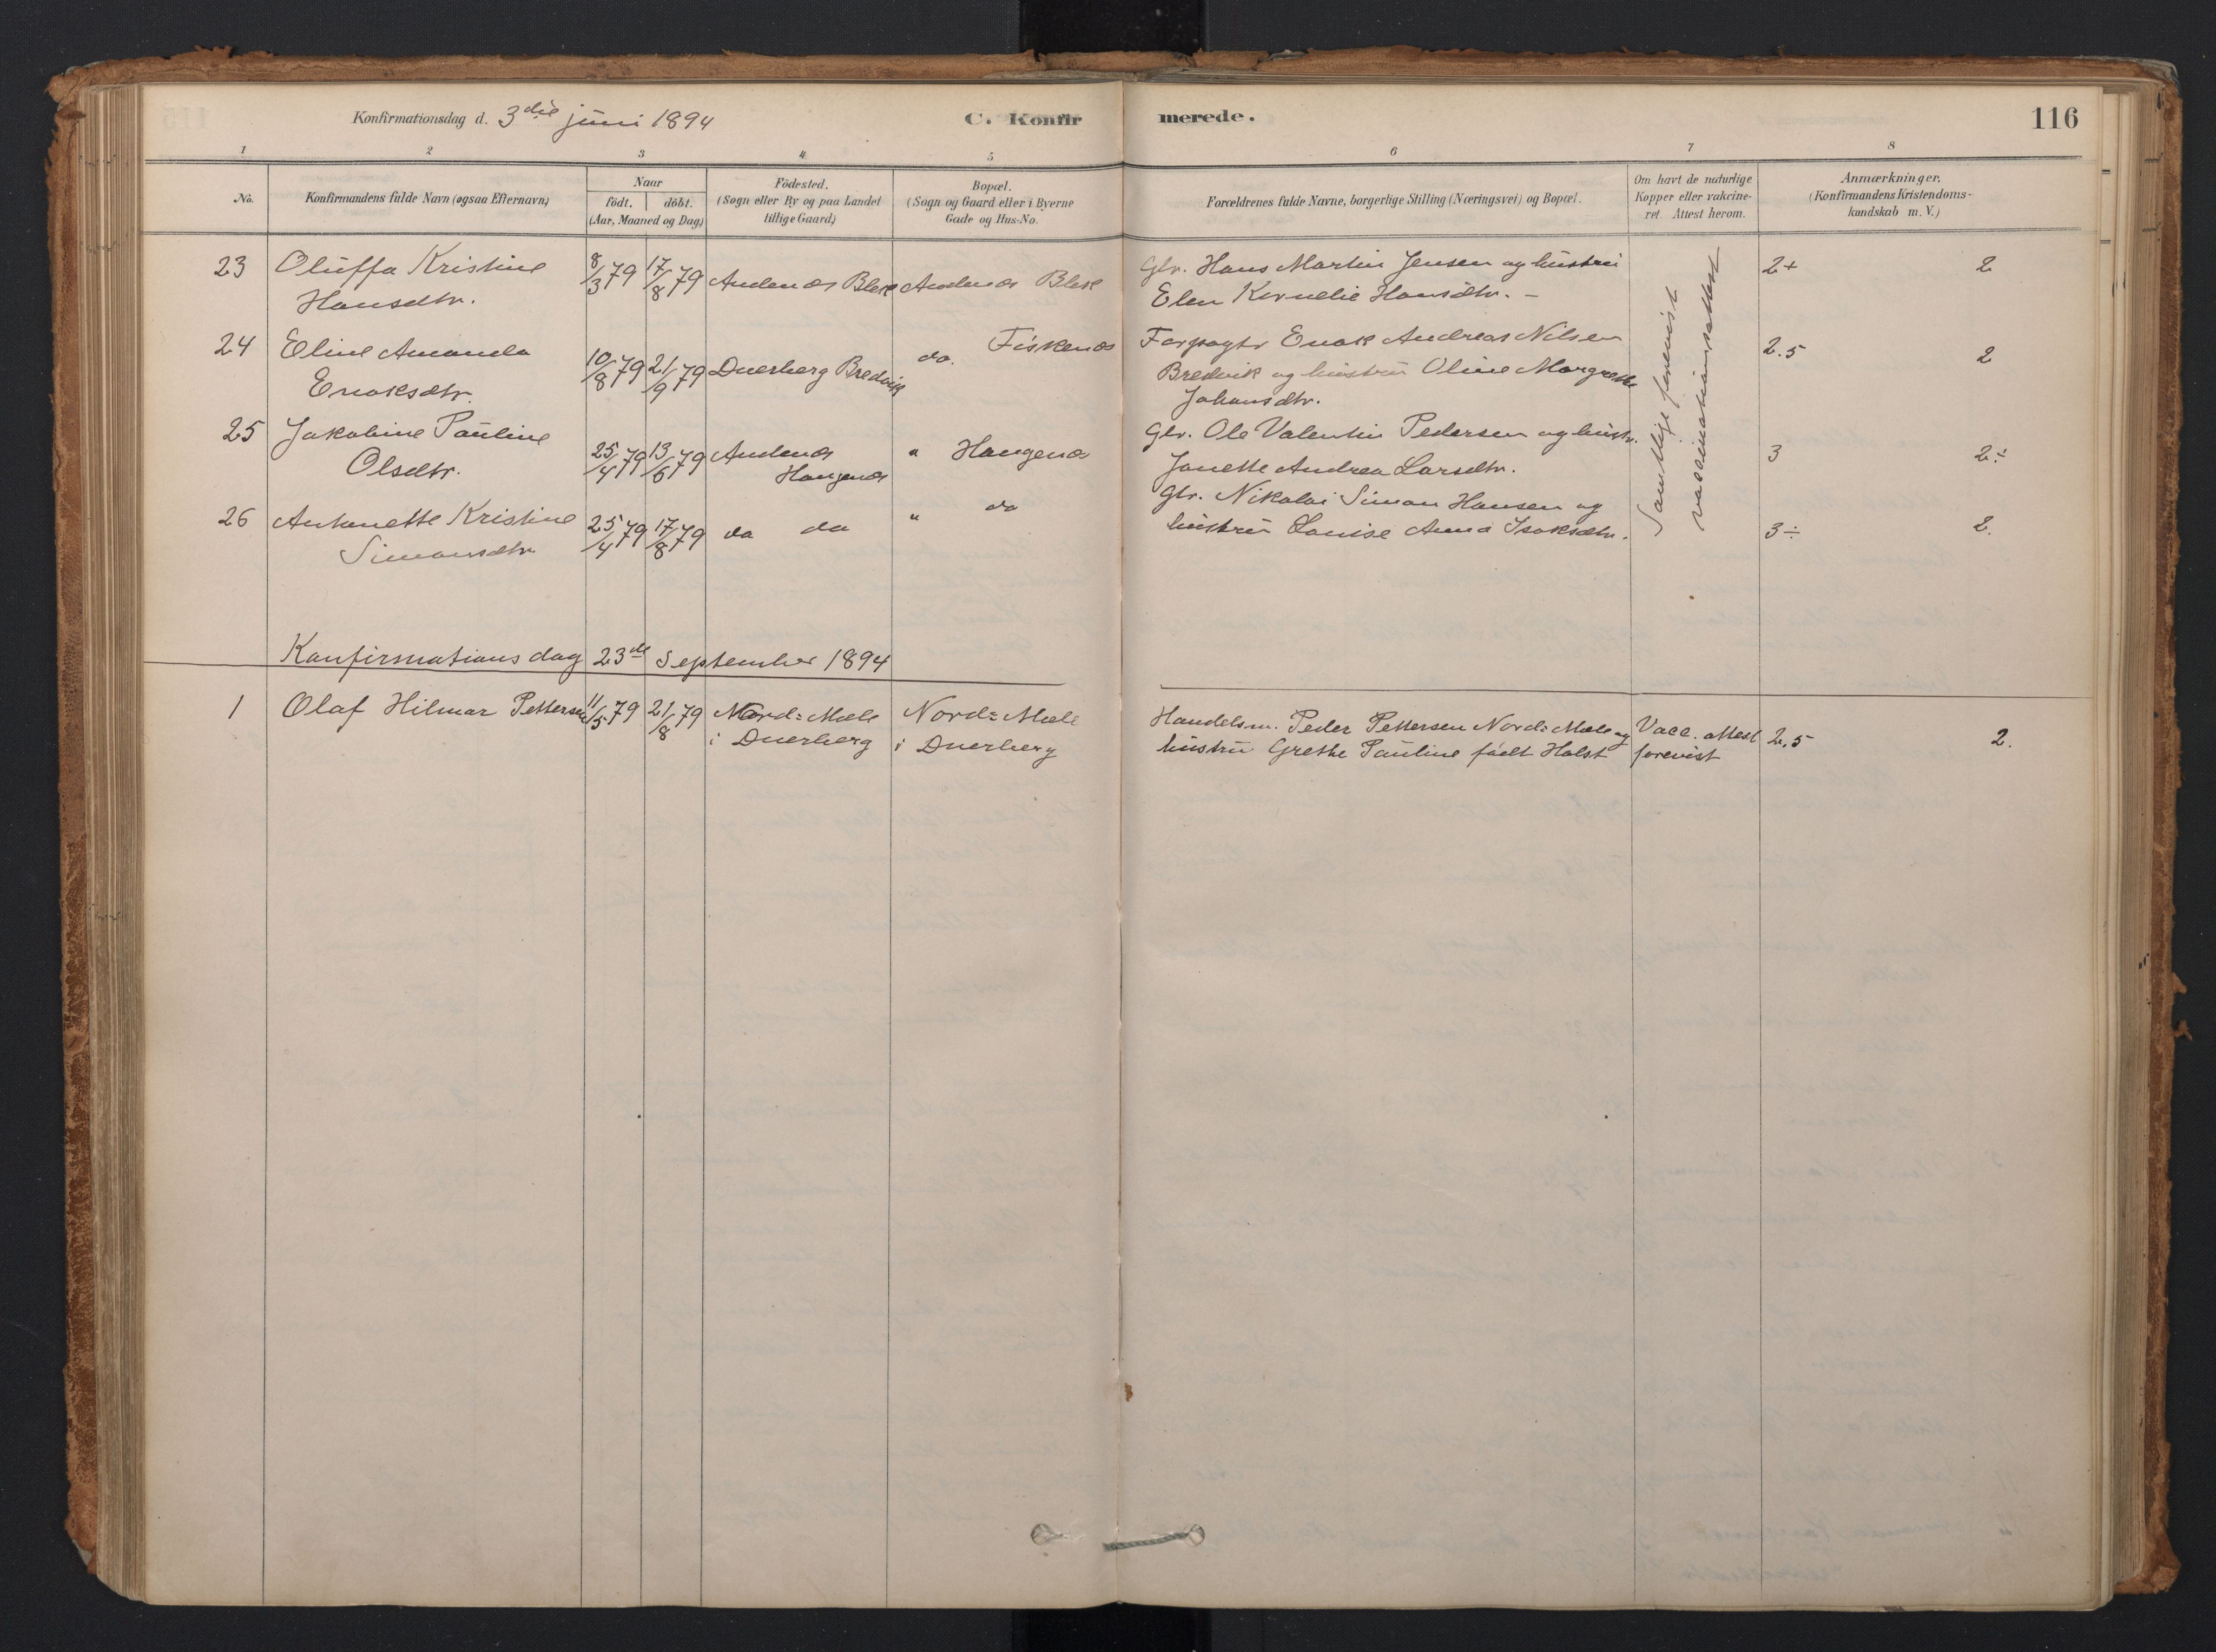 Konfirmationsdag d. 3die juni 1894
C. Konfirmerede.
116
1 2 3 4 5 6 7 8
No. Konfirmandens fulde Navn (ogsaa Efternavn) Naar födt. döbt. (Aar, Maaned og Dag) Födested. (Sogn eller By og paa Landet tillige Gaard) Bopæl. (Sogn og Gaard eller i Byerne Gade og Hus-No. Forældrenes fulde Navne, borgerlige Stilling (Næringsvei) og Bopæl. Om havt de naturlige Kopper eller vakcineret. Attest herom. Anmærkninger. (Konfirmandens Kristendomskundskab m. V.)
23 Oluffa Kristine 8/3 79 17/8 79 Andenæs Blek Andenæs Blek Gbr. Hans Martin Jensen og hustru 2+ 2
Hansdtr. Elen Kornelie Hansdtr. –
24 Eline Amanda 10/8 79 21/9 79 Dverberg Bredvik do. Fiskenæs Forpagtr Enok Andreas Nilsen 2.5 2
Enoksdtr. Bredvik og hustru Oline Margrethe
Johansdtr.
25 Jakobine Pauline 25/4 79 13/6 79 Andenæs " Haugenæs Gbr. Ole Valentin Pedersen og hustr. 3 2÷
Olsdtr. Haugenæs Janette Andrea Larsdtr.
26 Antonette Kristine 25/4 79 17/8 79 do do " do Gbr. Nikolai Simon Hansen og 3÷ 2.
Simonsdtr hustru Louise Anna Isaksdtr.
Samtlige forevist
vaccinationsattest
Konfirmationsdag 23de September 1894
1 Olaf Hilmar Pettersen 11/5 79 21/8 79 Nord=Mele Nord=Mele Handelsm. Peder Pettersen Nord=Mele og Vacc. attest 2,5 2.
i Dverberg i Dverberg hustru Grethe Pauline födt Holst forevist